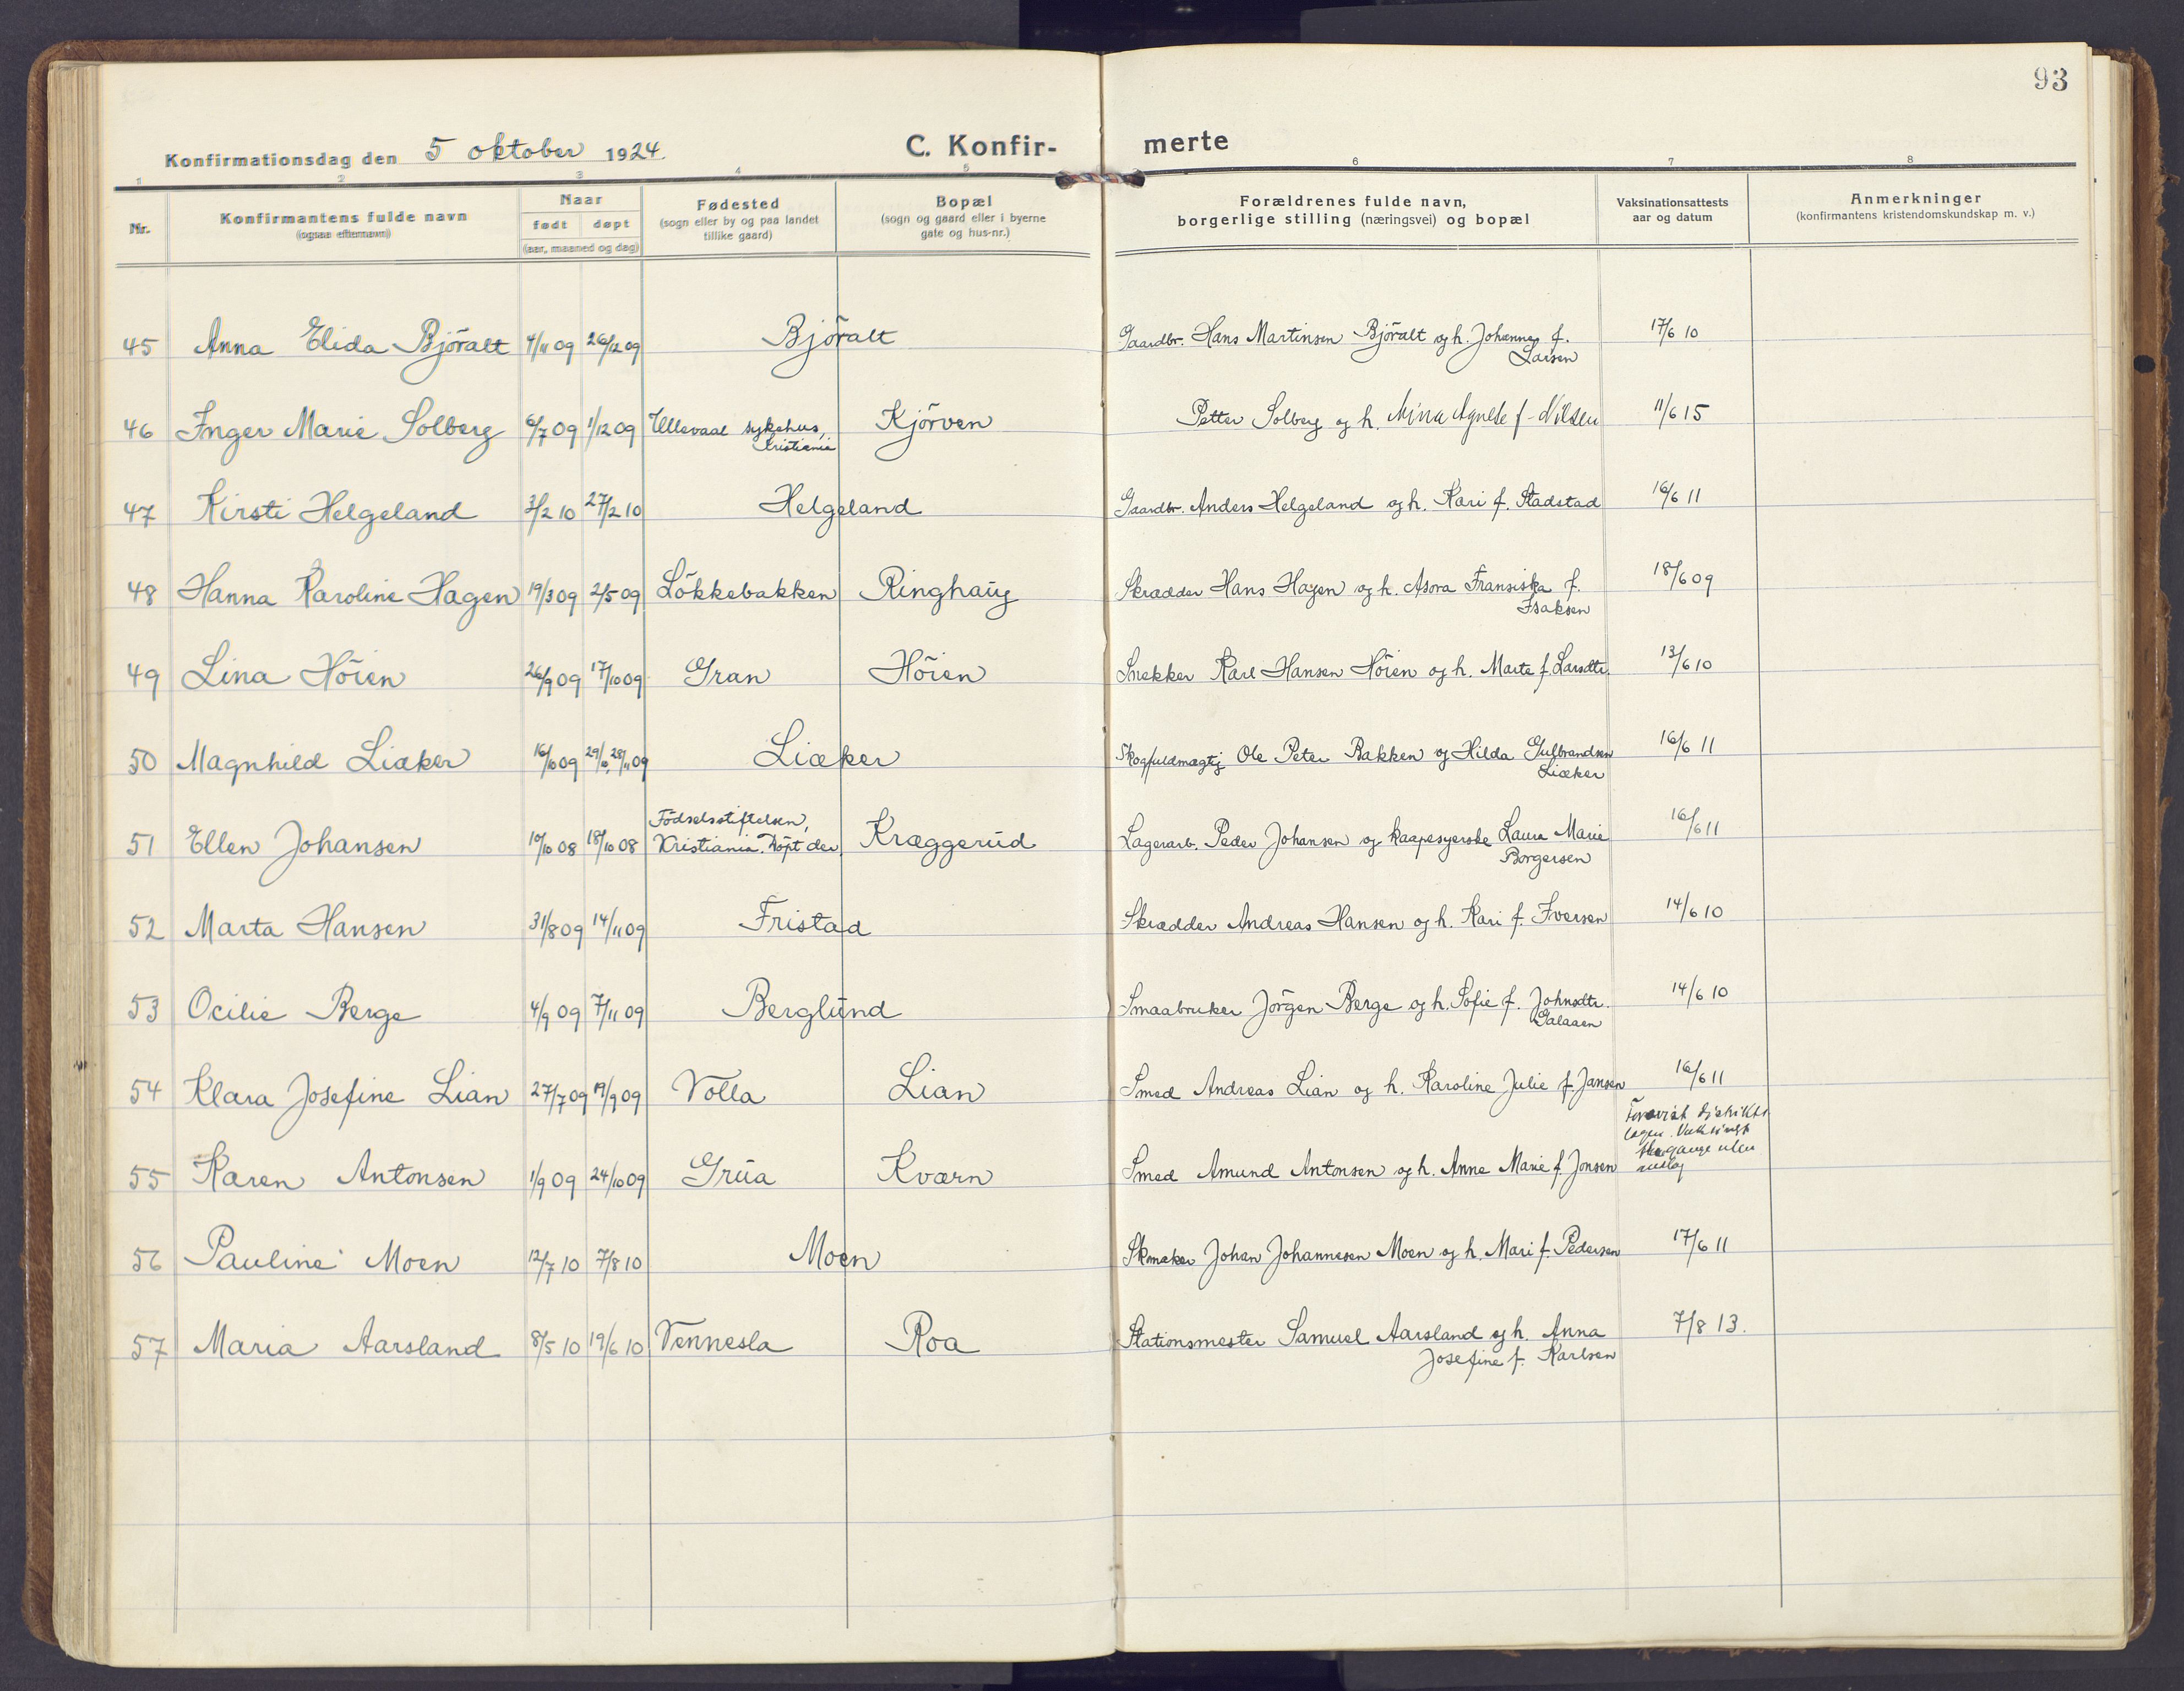 93
Konfirmationsdag den 5 oktober 1924.
C. Konfir-merte
1 2 3 4 5 6 7 8
Nr. Konfirmantens fulde navn (ogsaa efternavn) Naar født døpt (aar, maaned og dag) Fødested (sogn eller by og paa landet tillike gaard) Bopæl (sogn og gaard eller i byerne gate og hus-nr.) Forældrenes fulde navn, borgerlige stilling (næringsvei) og bopæl Vaksinationsattests aar og datum Anmerkninger (konfirmantens kristendomskundskap m. v.)
45 Anna Elida Björalt 4/11 09 26/12 09 Björalt Gaardbr. Hans Martinsen Björalt og h. Johanne f. Larsen 17/6 10
46 Inger Marie Solberg 6/7 09 1/12 09 Ullevaal sykehus, Kristiania Kjörven Petter Solberg og h. Mina Agnete f. Nilsen 11/6 15
47 Kirsti Helgeland 3/2 10 27/2 10 Helgeland Gaardbr. Anders Helgeland og h. Kari f. Stadstad 16/6 11
48 Hanna Karoline Hagen 19/3 09 2/5 09 Lökkebakken Ringhaug Skrædder Hans Hagen og h. Asora Fransiska f. Isaksen 18/6 09
49 Lina Höien 26/9 09 17/10 09 Gran Höien Snekker Karl Hansen Höien og h. Marte f. Larsdtr. 13/6 10
50 Magnhild Liæker 16/10 09 29/10, 28/11 09 Liæker Skogfuldmægtig Ole Peter Bakken og Hilda Gulbrandsen Liæker 16/6 11
51 Ellen Johansen 10/10 08 18/10 08 Födselsstiftelsen, Kristiania. Döpt der. Kræggerud Lagerarb. Peder Johansen og kaapesyerske Laura Marie Borgersen 16/6 11
52 Marta Hansen 31/8 09 14/11 09 Fristad Skrædder Andreas Hansen og h. Kari f. Iversen 14/6 10
53 Ocilie Berge 4/9 09 7/11 09 Berglund Smaabruker Jörgen Berge og h. Sofie f. Johnsdtr. Galaaen 14/6 10
54 Klara Josefine Lian 27/7 09 19/9 09 Volla Lian Smed Andreas Lian og h. Karoline Julie f. Jansen 16/6 11
55 Karen Antonsen 1/9 09 24/10 09 Grua Kværn Smed Amund Antonsen og h. Anne Marie f. Jonsen gange uten
56 Pauline Moen 12/7 10 7/8 10 Moen Skomaker Johan Johannesen Moen og h. Mari f. Pedersen 17/6 11
57 Maria Aarsland 8/5 10 19/6 10 Vennesla Roa Stationsmester Samuel Aarsland og h. Anna Josefine f. Karlsen 7/8 13.